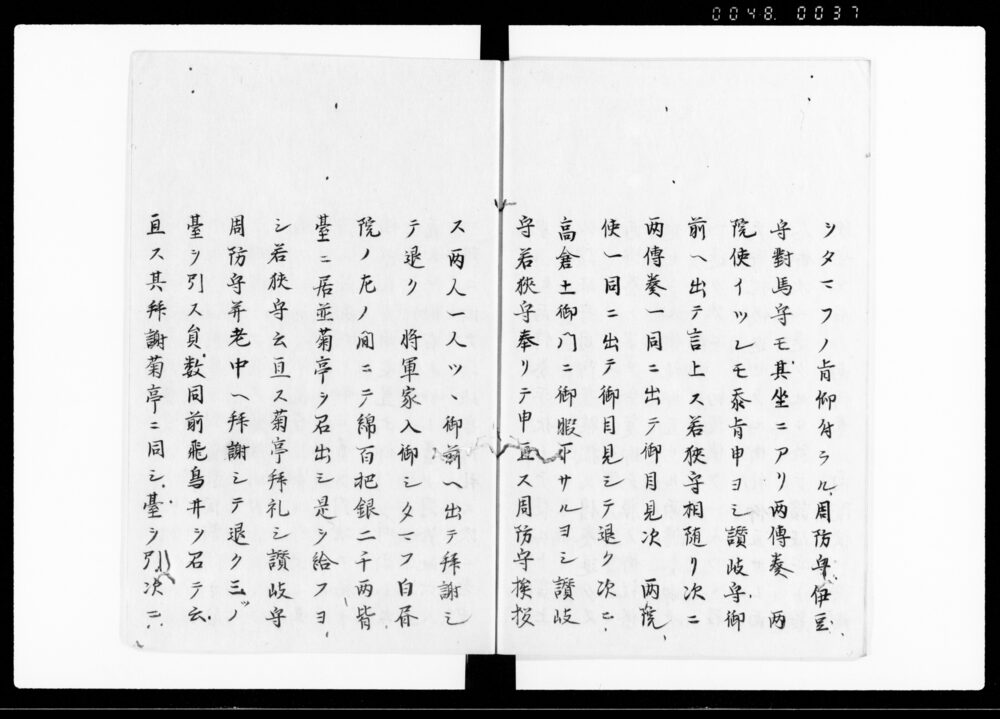 0048. 0037
シタマフノ肯仰付ラル周防守伊豆
守對馬守モ其坐ニアリ两傳奏 两
院使イツレモ忝肯申ヨシ讃岐守御
前ヘ出テ言上ス若狹守相随リ次ニ
两傳奏一同ニ出テ御目見次 两院
使一同ニ出テ御目見シテ退ク次ニ
高倉土御门ニ御暇下サルヨシ讃岐
守若狹守奉リテ申亘ス周防守挨拶
ス两人一人ツヽ御前ヘ出テ拜謝シ
テ退ク 將軍家入御シタマフ白昼
院ノ尤ノ间ニテ綿百把銀二千两皆
臺ニ居並菊亭ヲ召出シ是ヲ給フヨ
シ若狹守云亘ス菊亭拜礼シ讃岐守
周防守并老中ヘ拜謝シテ退ク三ツノ
臺ヲ引ス員数同前飛鳥井ヲ召テ云
亘ス其拜謝菊亭ニ同シ臺ヲ引次ニ